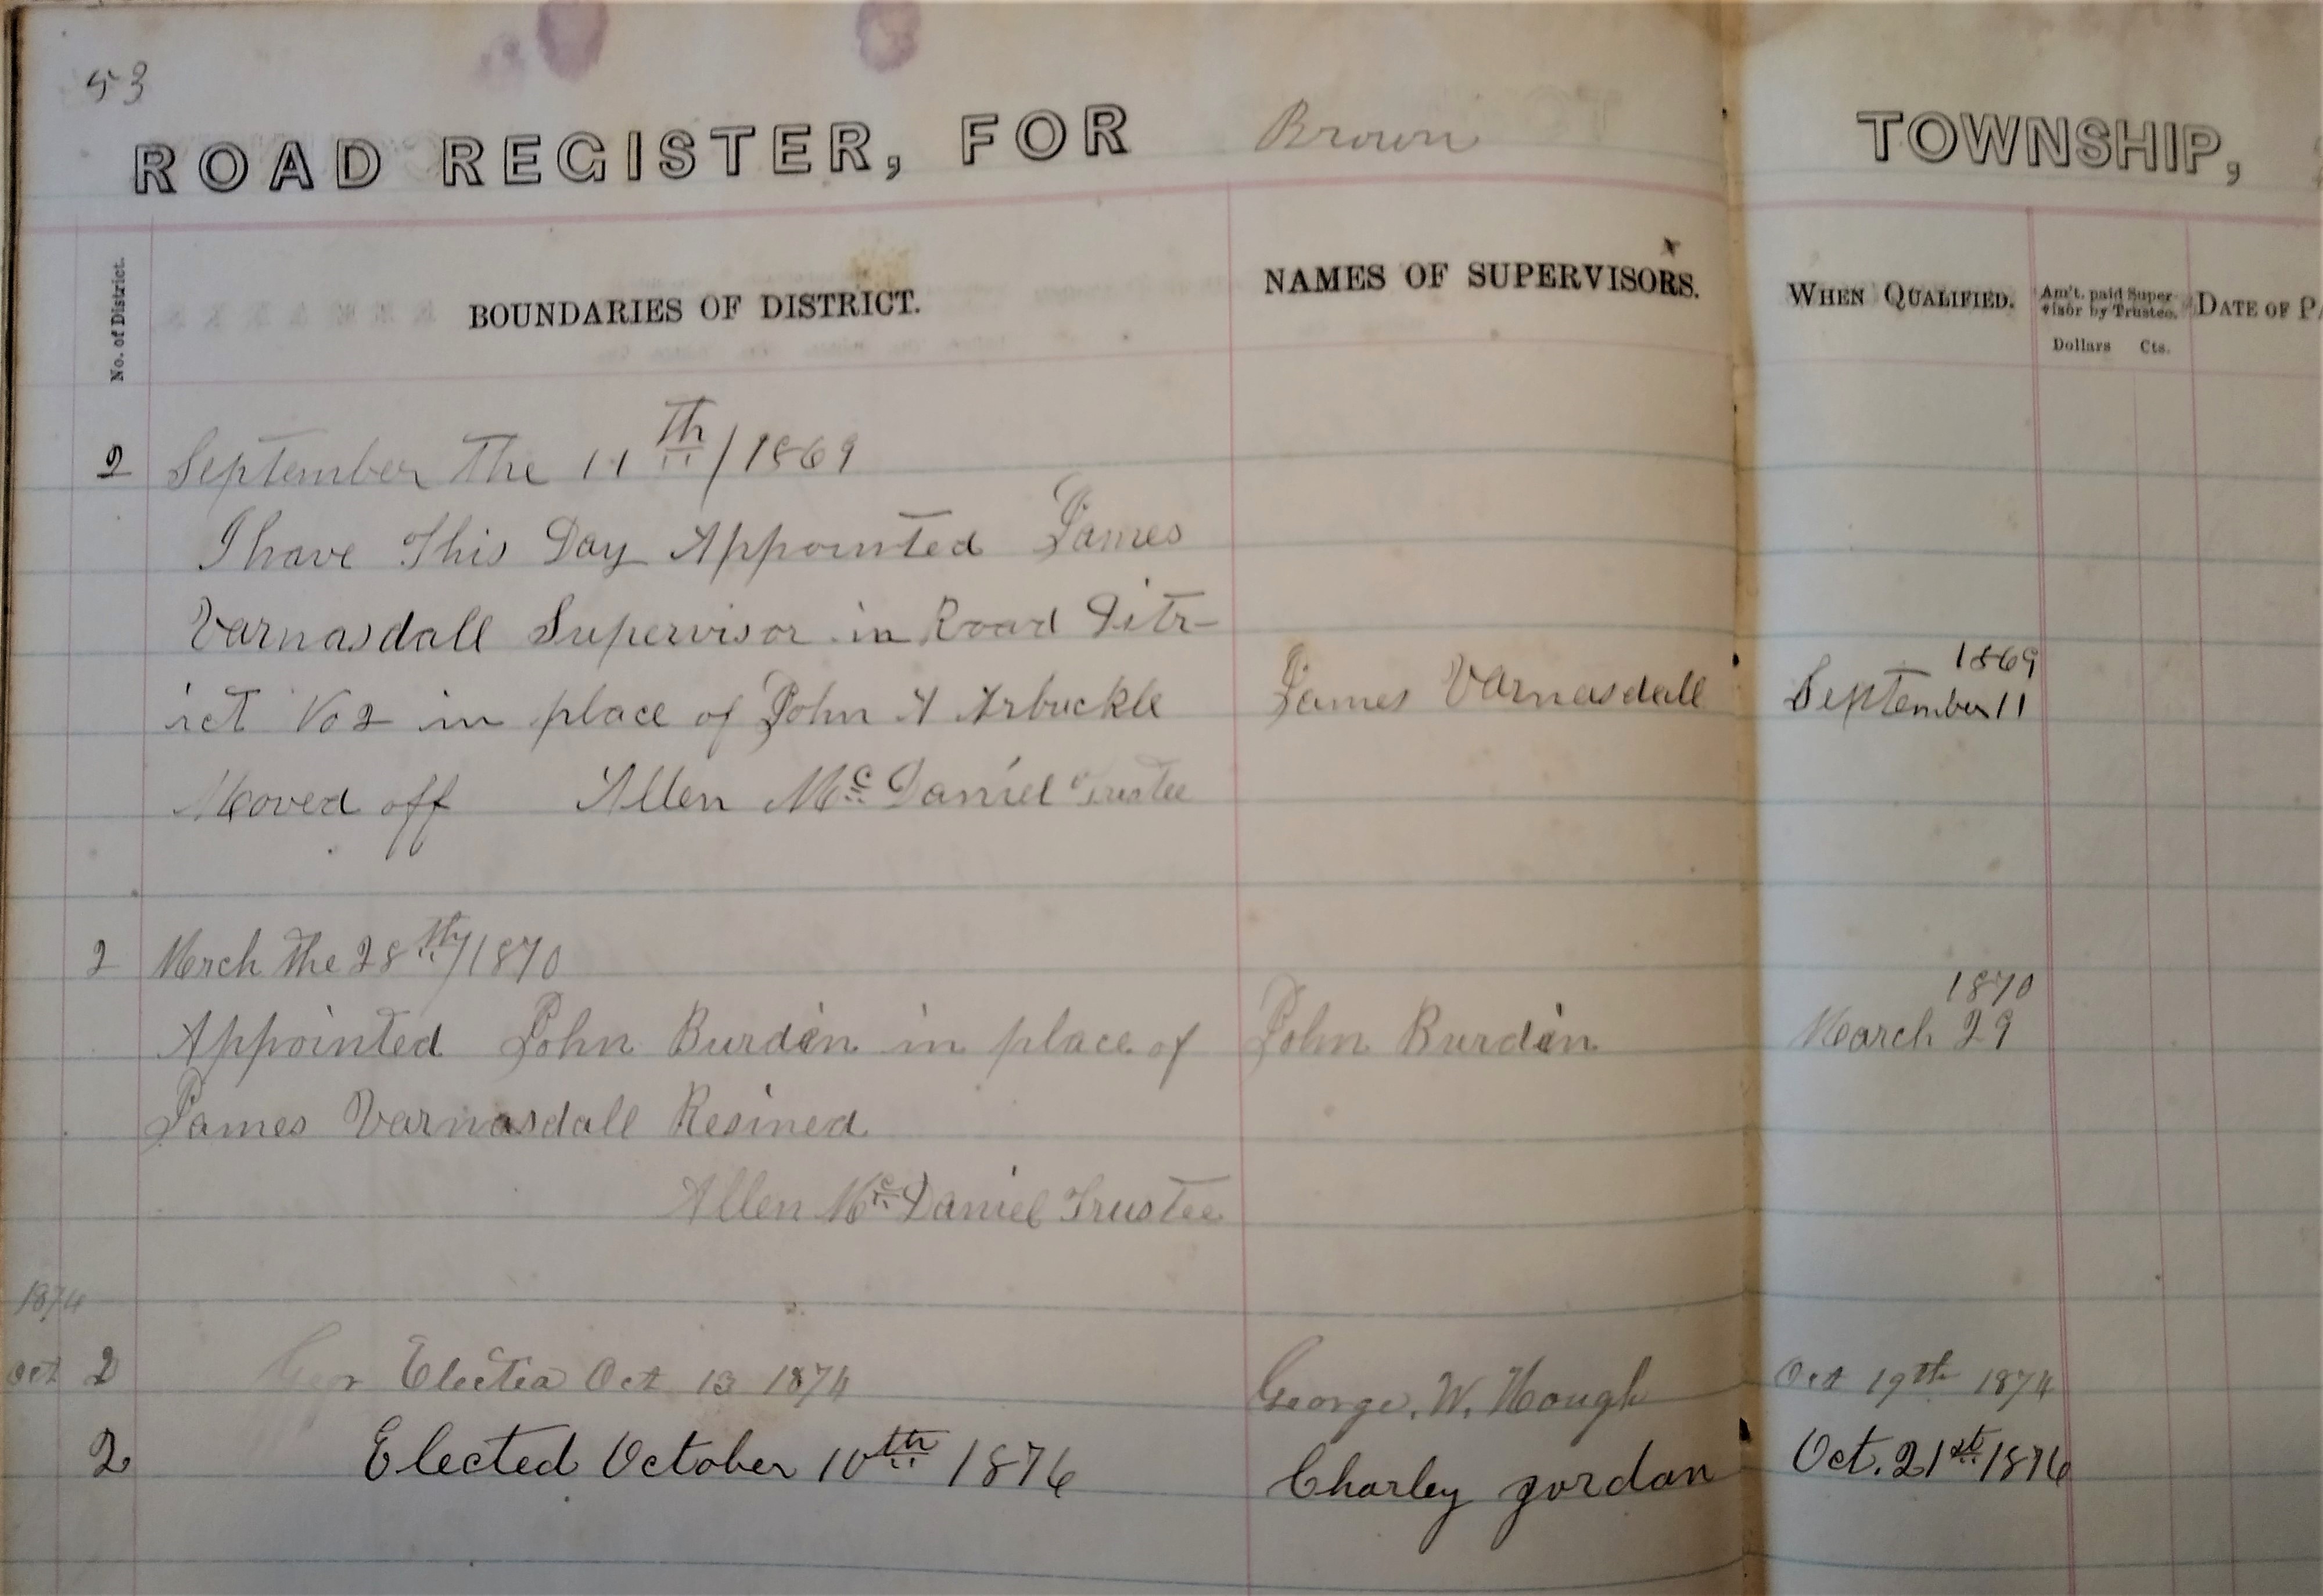 53
ROAD REGISTER, FOR Brown TOWNSHIP,
No. of District. BOUNDARIES OF DISTRICT. NAMES OF SUPERVISORS. WHEN QUALIFIED. Am't. paid Super- visor by Trustee. Dollars Cts. DATE OF PA
2 September The 11 Th / 1869
I have This Day Appointed James
Varnasdall Supervisor in Road Ditr-
1869
ict No 2 in place of John A Arbuckle James Varnasdall September 11
Moved off Allen Mc Daniel Trustee
2 March the 28 th / 1870
1870
Appointed John Burdin in place of John Burdin March 29
James Varnasdall Resined
Allen Mc Daniel Trustee
1874
Oct 2 Elected Oct 13 1874 George. W. Hough Oct 19th 1874
2 Elected October 10th 1876 Charley gordan Oct. 21st 1876